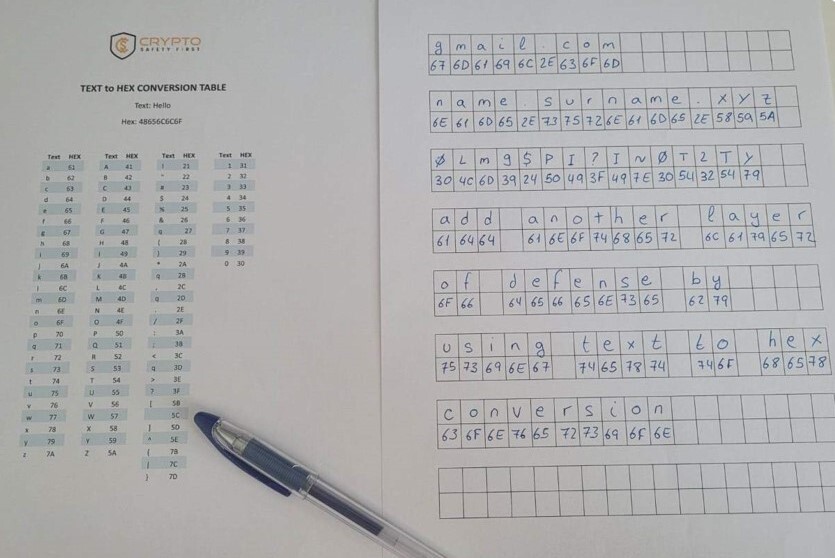 CRYPTO
SAFETY FIRST
TEXT to HEX CONVERSION TABLE
Text: Hello
Hex: 48656C6C6F
Text HEX Text HEX Text HEX Text HEX
a 61 A 41 ! 21 1 31
b 62 B 42 " 22 2 32
c 63 C 43 # 23 3 33
d 64 D 44 $ 24 4 34
e 65 E 45 % 25 5 35
f 66 F 46 & 26 6 36
g 67 G 47 q 27 7 37
h 68 H 48 ( 28 8 38
i 69 I 49 ) 29 9 39
j 6A J 4A * 2A 0 30
k 6B K 4B q 2B
l 6C L 4C , 2C
m 6D M 4D q 2D
n 6E N 4E . 2E
o 6F O 4F / 2F
p 70 P 50 : 3A
q 71 Q 51 ; 3B
r 72 R 52 < 3C
s 73 S 53 q 3D
t 74 T 54 > 3E
u 75 U 55 ? 3F
v 76 V 56 [ 5B
w 77 W 57 5C
x 78 X 58 ] 5D
y 79 Y 59 ^ 5E
z 7A Z 5A { 7B
| 7C
} 7D
gmail.com
67 6D 61 69 6C 2E 63 6F 6D
name.surname.xyz
6E 61 6D 65 2E 73 75 72 6E 61 6D 65 2E 58 59 5A
ØLm9$PI?I~ØT2Ty
30 4C 6D 39 24 50 49 3F 49 7E 30 54 32 54 79
add another layer
61 64 64 61 6E 6F 74 68 65 72 6C 61 79 65 72
of defense by
6F 66 64 65 66 65 6E 73 65 62 79
using text to hex
75 73 69 6E 67 74 65 78 74 74 6F 68 65 78
conversion
63 6F 6E 76 65 72 73 69 6F 6E